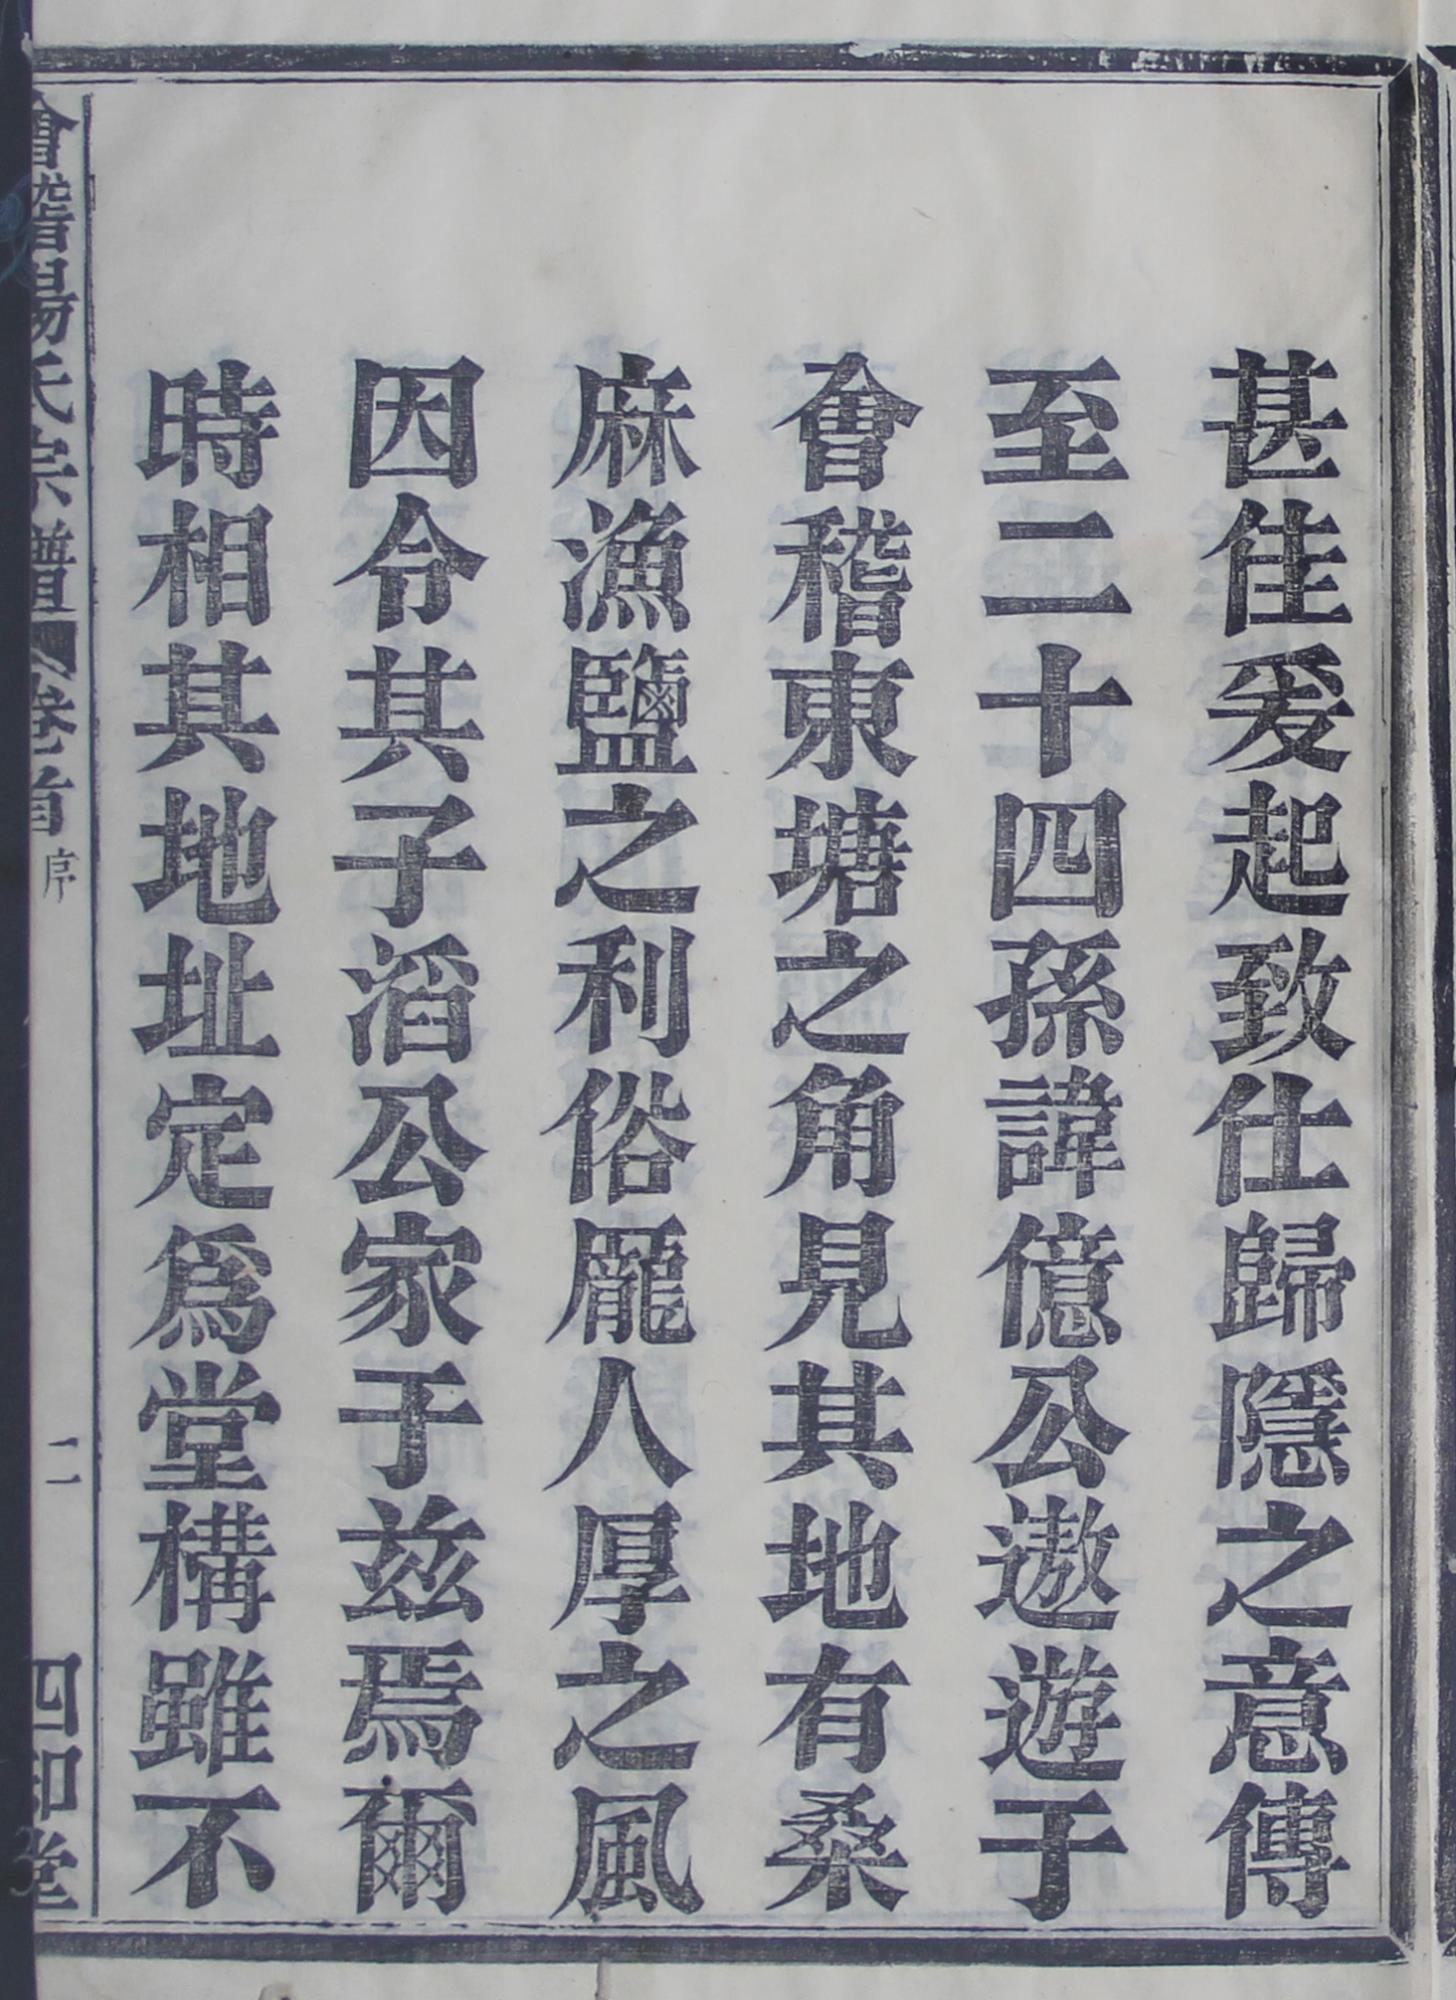 甚佳爰起致仕歸隱之意傳
至二十四孫諱億公遨遊于
會稽東塘之角見其地有桑
麻漁鹽之利俗龎人厚之風
因令其子滔公家于兹焉爾
時相其地址定爲堂構雖不
會稽陽氏宗譜 卷首 序 二 四知堂